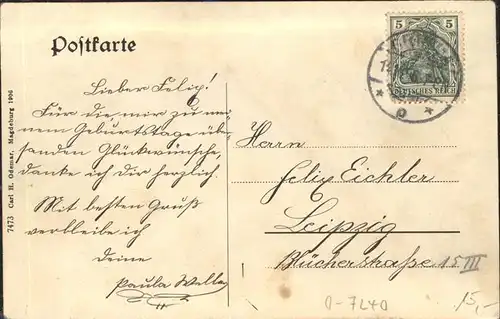 Postkarte
5 5
DEUTSCHES REICH
Lieber Felix!
Für die mir zu mei-
nem Geburtstage über-
sanden Glückwünsche,
danke ich dir herzlich.
Mit besten Gruß
verbleibe ich
deine
Paula Welle
Herrn
Felix Eichler
Leipzig
Blücherstraße 15 III
7473 Carl H. Odemar, Magdeburg 1906
0-7240
15,-